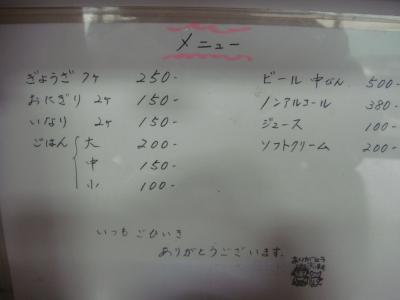 メニュー
ぎょうざ 7ケ 250-
おにぎり 2ケ 150-
いなり 2ケ 150-
ごはん 大 200-
中 150-
小 100-
ビール 中びん 500-
ノンアルコール 380-
ジュース 100-
ソフトクリーム 200-
いつもごひいき
ありがとうございます.
ありがとう